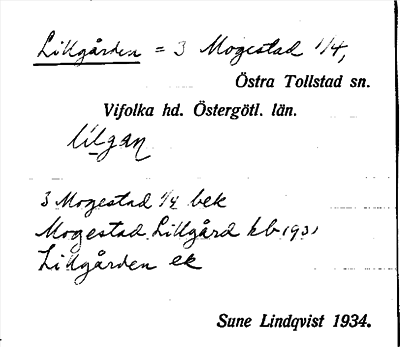 Lillgården = 3 Mogestad 1/4,
Östra Tollstad sn.
Vifolka hd. Östergötl. län.
lilgan
3 Mogestad 1/4 bek
Mogestad Lillgård kb 1931
Lillgården ek
Sune Lindqvist 1934.